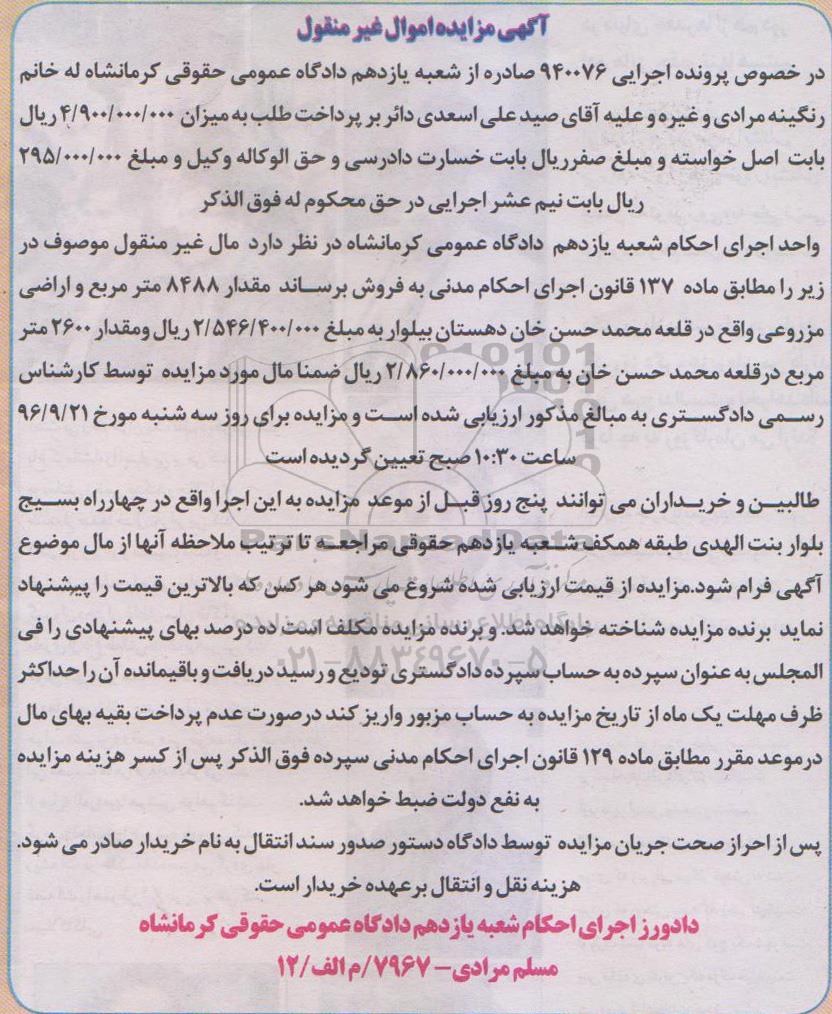 آگهی مزایده اموال غیر منقول
در خصوص پرونده اجرایی ۹۴۰۰۷۶ صادره از شعبه یازدهم دادگاه عمومی حقوقی کرمانشاه له خانم
رنگینه مرادی و غیره و علیه آقای صید علی اسعدی دائر بر پرداخت طلب به میزان ۴/۹۰۰/۰۰۰/۰۰۰ ریال
بابت اصل خواسته و مبلغ صفرریال بابت خسارت دادرسی و حق الوکاله وکیل و مبلغ ۲۹۵/۰۰۰/۰۰۰
ریال بابت نیم عشر اجرایی در حق محکوم له فوق الذکر
واحد اجرای احکام شعبه یازدهم دادگاه عمومی کرمانشاه در نظر دارد مال غیر منقول موصوف در
زیر را مطابق ماده ۱۳۷ قانون اجرای احکام مدنی به فروش برساند مقدار ۸۴۸۸ متر مربع و اراضی
مزروعی واقع در قلعه محمد حسن خان دهستان بیلوار به مبلغ ۲/۵۴۶/۴۰۰/۰۰۰ ریال ومقدار ۲۶۰۰ متر
مربع درقلعه محمد حسن خان به مبلغ ۲/۸۶۰/۰۰۰/۰۰۰ ریال ضمنا مال مورد مزایده توسط کارشناس
رسمی دادگستری به مبالغ مذکور ارزیابی شده است و مزایده برای روز سه شنبه مورخ ۹۶/۹/۲۱
ساعت ۱۰:۳۰ صبح تعیین گردیده است
طالبین و خریداران می توانند پنج روز قبل از موعد مزایده به این اجرا واقع در چهارراه بسیج
بلوار بنت الهدی طبقه همکف شعبه یازدهم حقوقی مراجعه تا ترتیب ملاحظه آنها از مال موضوع
آگهی فرام شود.مزایده از قیمت ارزیابی شده شروع می شود هر کس که بالاترین قیمت را پیشنهاد
نماید برنده مزایده شناخته خواهد شد. و برنده مزایده مکلف است ده درصد بهای پیشنهادی را فی
المجلس به عنوان سپرده به حساب سپرده دادگستری تودیع و رسید دریافت و باقیمانده آن را حداکثر
ظرف مهلت یک ماه از تاریخ مزایده به حساب مزبور واریز کند درصورت عدم پرداخت بقیه بهای مال
درموعد مقرر مطابق ماده ۱۲۹ قانون اجرای احکام مدنی سپرده فوق الذکر پس از کسر هزینه مزایده
به نفع دولت ضبط خواهد شد.
پس از احراز صحت جریان مزایده توسط دادگاه دستور صدور سند انتقال به نام خریدار صادر می شود.
هزینه نقل و انتقال برعهده خریدار است.
دادورز اجرای احکام شعبه یازدهم دادگاه عمومی حقوقی کرمانشاه
مسلم مرادی- ۷۹۶۷/م الف/۱۲
ParsNamadData
۰۲۱-۸۸۳۴۹۶۷۰-۵